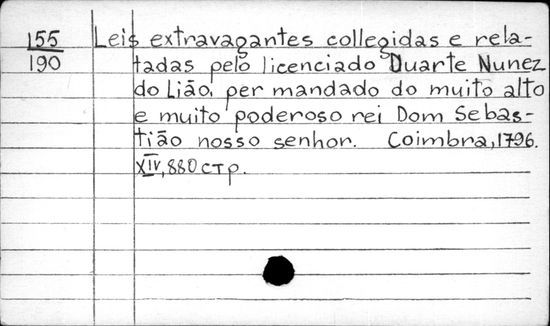 155 Leis extravagantes collegidas e rela-
190 tadas pelo licenciado Duarte Nunez
do Lião, per mandado do muito alto
e muito poderoso rei Dom Sebas-
tião nosso senhor. Coimbra, 1796.
XIV, 880 стр.